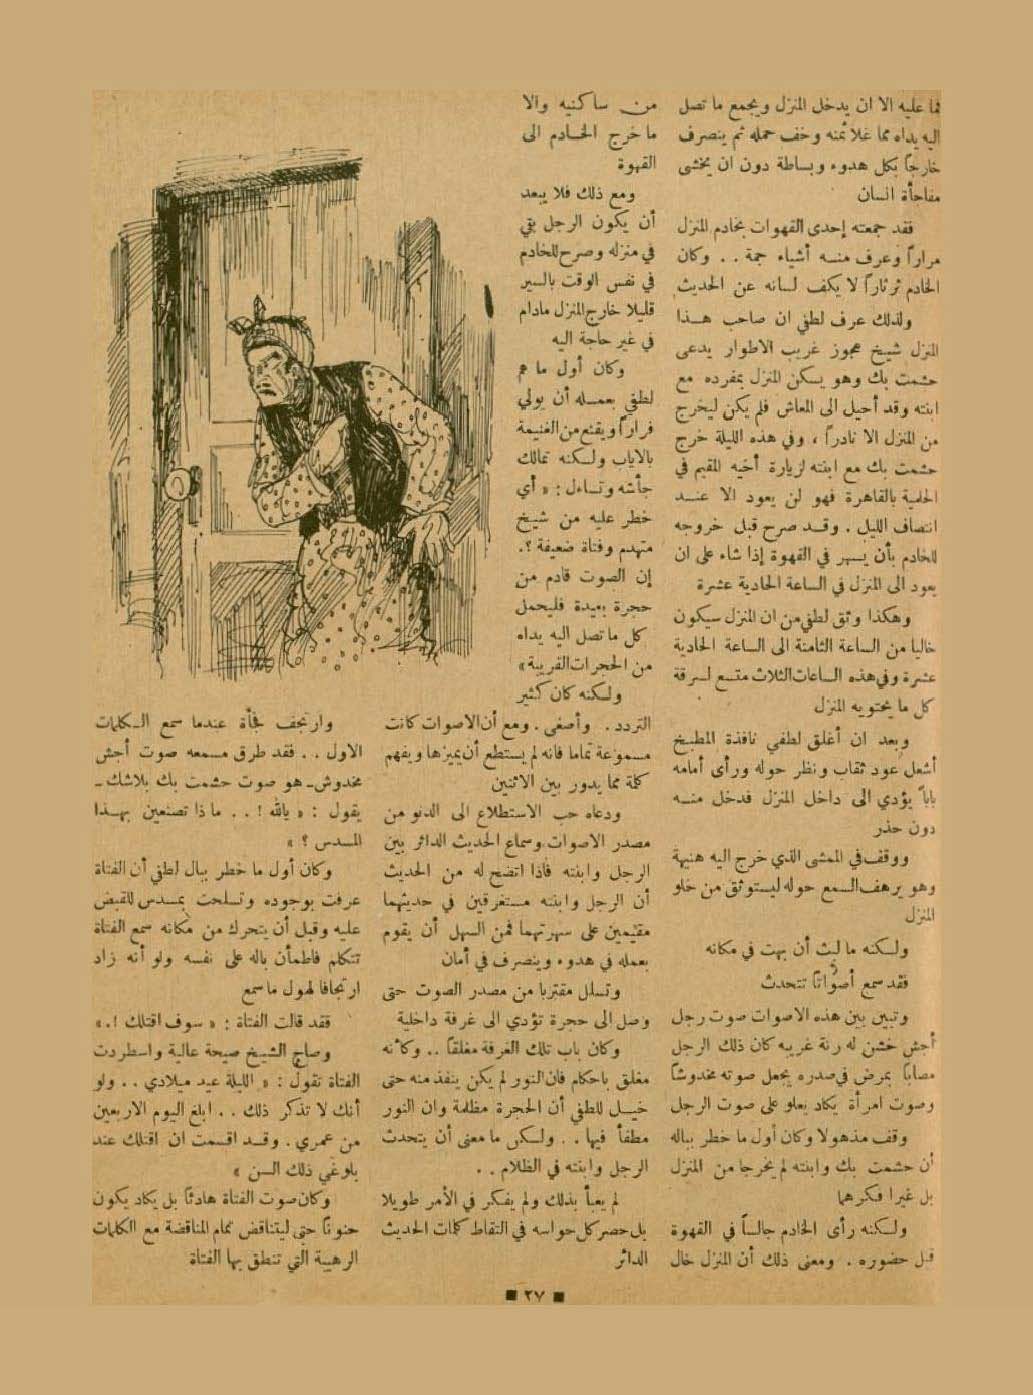 فما عليه الا ان يدخل المنزل ويجمع ما تصل
اليه يداه مما غلا ثمنه وخف حمله ثم ينصرف
خارجاً بكل هدوء وبساطة دون ان يخشى
مفاجأة انسان
فقد جمعته إحدى القهوات بخادم المنزل
مراراً وعرف منه أشياء جمة . . وكان
الخادم ثرثاراً لا يكف لسانه عن الحديث
ولذلك عرف لطفي ان صاحب هذا
المنزل شيخ عجوز غريب الاطوار يدعى
حشمت بك وهو يسكن المنزل بمفرده مع
ابنته وقد أحيل الى المعاش فلم يكن ليخرج
من المنزل الا نادراً ، وفي هذه الليلة خرج
حشمت بك مع ابنته لزيارة أخيه المقيم في
الحلمية بالقاهرة فهو لن يعود الا عند
انتصاف الليل . وقد صرح قبل خروجه
للخادم بأن يسهر في القهوة إذا شاء على ان
يعود الى المنزل في الساعة الحادية عشرة
وهكذا وثق لطفي من ان المنزل سيكون
خاليا من الساعة الثامنة الى الساعة الحادية
عشرة وفي هذه الساعات الثلاث متسع لسرقة
كل ما يحتويه المنزل
وبعد ان أغلق لطفي نافذة المطبخ
أشعل عود ثقاب ونظر حوله ورأى أمامه
باباً يؤدي الى داخل المنزل فدخل منه
دون حذر
ووقف في الممشى الذي خرج اليه هنيهة
وهو يرهف السمع حوله ليستوثق من خلو
المنزل
ولكنه ما لبث أن بهت في مكانه
فقد سمع أصواتاً تتحدث
وتبين بين هذه الاصوات صوت رجل
أجش خشن له رنة غريبه كان ذلك الرجل
مصاباً بمرض في صدره يجعل صوته مخدوشاً
وصوت امرأة يكاد يعلو على صوت الرجل
وقف مذهولا وكان أول ما خطر بباله
أن حشمت بك وابنته لم يخرجا من المنزل
بل غيرا فكرهما
ولكنه رأى الخادم جالساً في القهوة
قبل حضوره . ومعنى ذلك أن المنزل خال
من ساكنيه والا
ما خرج الخادم الى
القهوة
ومع ذلك فلا يبعد
أن يكون الرجل بقي
في منزله وصرح للخادم
في نفس الوقت بالسير
قليلا خارج المنزل مادام
في غير حاجة اليه
وكان أول ما هم
لطفي بعمله أن يولي
فراراً ويقنع من الغنيمة
بالاياب ولكنه تمالك
جأشه وتساءل : « أي
خطر عليه من شيخ
متهدم وفتاة ضعيفة ؟.
إن الصوت قادم من
حجرة بعيدة فليحمل
كل ما تصل اليه يداه
من الحجرات القريبة »
ولكنه كان كثير
التردد . وأصغى . ومع أن الاصوات كانت
مسموعة تماما فانه لم يستطع أن يميزها ويفهم
كلمة مما يدور بين الاثنين
ودعاه حب الاستطلاع الى الدنو من
مصدر الاصوات وسماع الحديث الدائر بين
الرجل وابنته فاذا اتضح له من الحديث
أن الرجل وابنته مستغرقين في حديثهما
مقيمين على سهرتهما فمن السهل أن يقوم
بعمله في هدوء وينصرف في أمان
وتسلل مقتربا من مصدر الصوت حتى
وصل الى حجرة تؤدي الى غرفة داخلية
وكان باب تلك الغرفة مغلقاً . . وكأنه
مغلق باحكام فان النور لم يكن ينفذ منه حتى
خيل للطفي أن الحجرة مظلمة وان النور
مطفأ فيها . . ولكن ما معنى أن يتحدث
الرجل وابنته في الظلام . .
لم يعبأ بذلك ولم يفكر في الأمر طويلا
بل حصر كل حواسه في التقاط كلمات الحديث
الدائر
وارتجف فجأة عندما سمع الكلمات
الاول . . فقد طرق مسمعه صوت أجش
مخدوش ـ هو صوت حشمت بك بلاشك ـ
يقول : « يالله ! . . ماذا تصنعين بهذا
المسدس ؟ »
وكان أول ما خطر ببال لطفي أن الفتاة
عرفت بوجوده وتسلحت بمسدس للقبض
عليه وقبل أن يتحرك من مكانه سمع الفتاة
تتكلم فاطمأن باله على نفسه ولو أنه زاد
ارتجافا لهول ما سمع
فقد قالت الفتاة : « سوف اقتلك !. »
وصاح الشيخ صيحة عالية واستطردت
الفتاة تقول : « الليلة عيد ميلادي . . ولو
أنك لا تذكر ذلك . . ابلغ اليوم الاربعين
من عمري . وقد اقسمت ان اقتلك عند
بلوغي ذلك السن »
وكان صوت الفتاة هادئاً بل يكاد يكون
حنوناً حتى ليتناقض تمام المناقضة مع الكلمات
الرهيبة التي تنطق بها الفتاة
■ ٢٧ ■